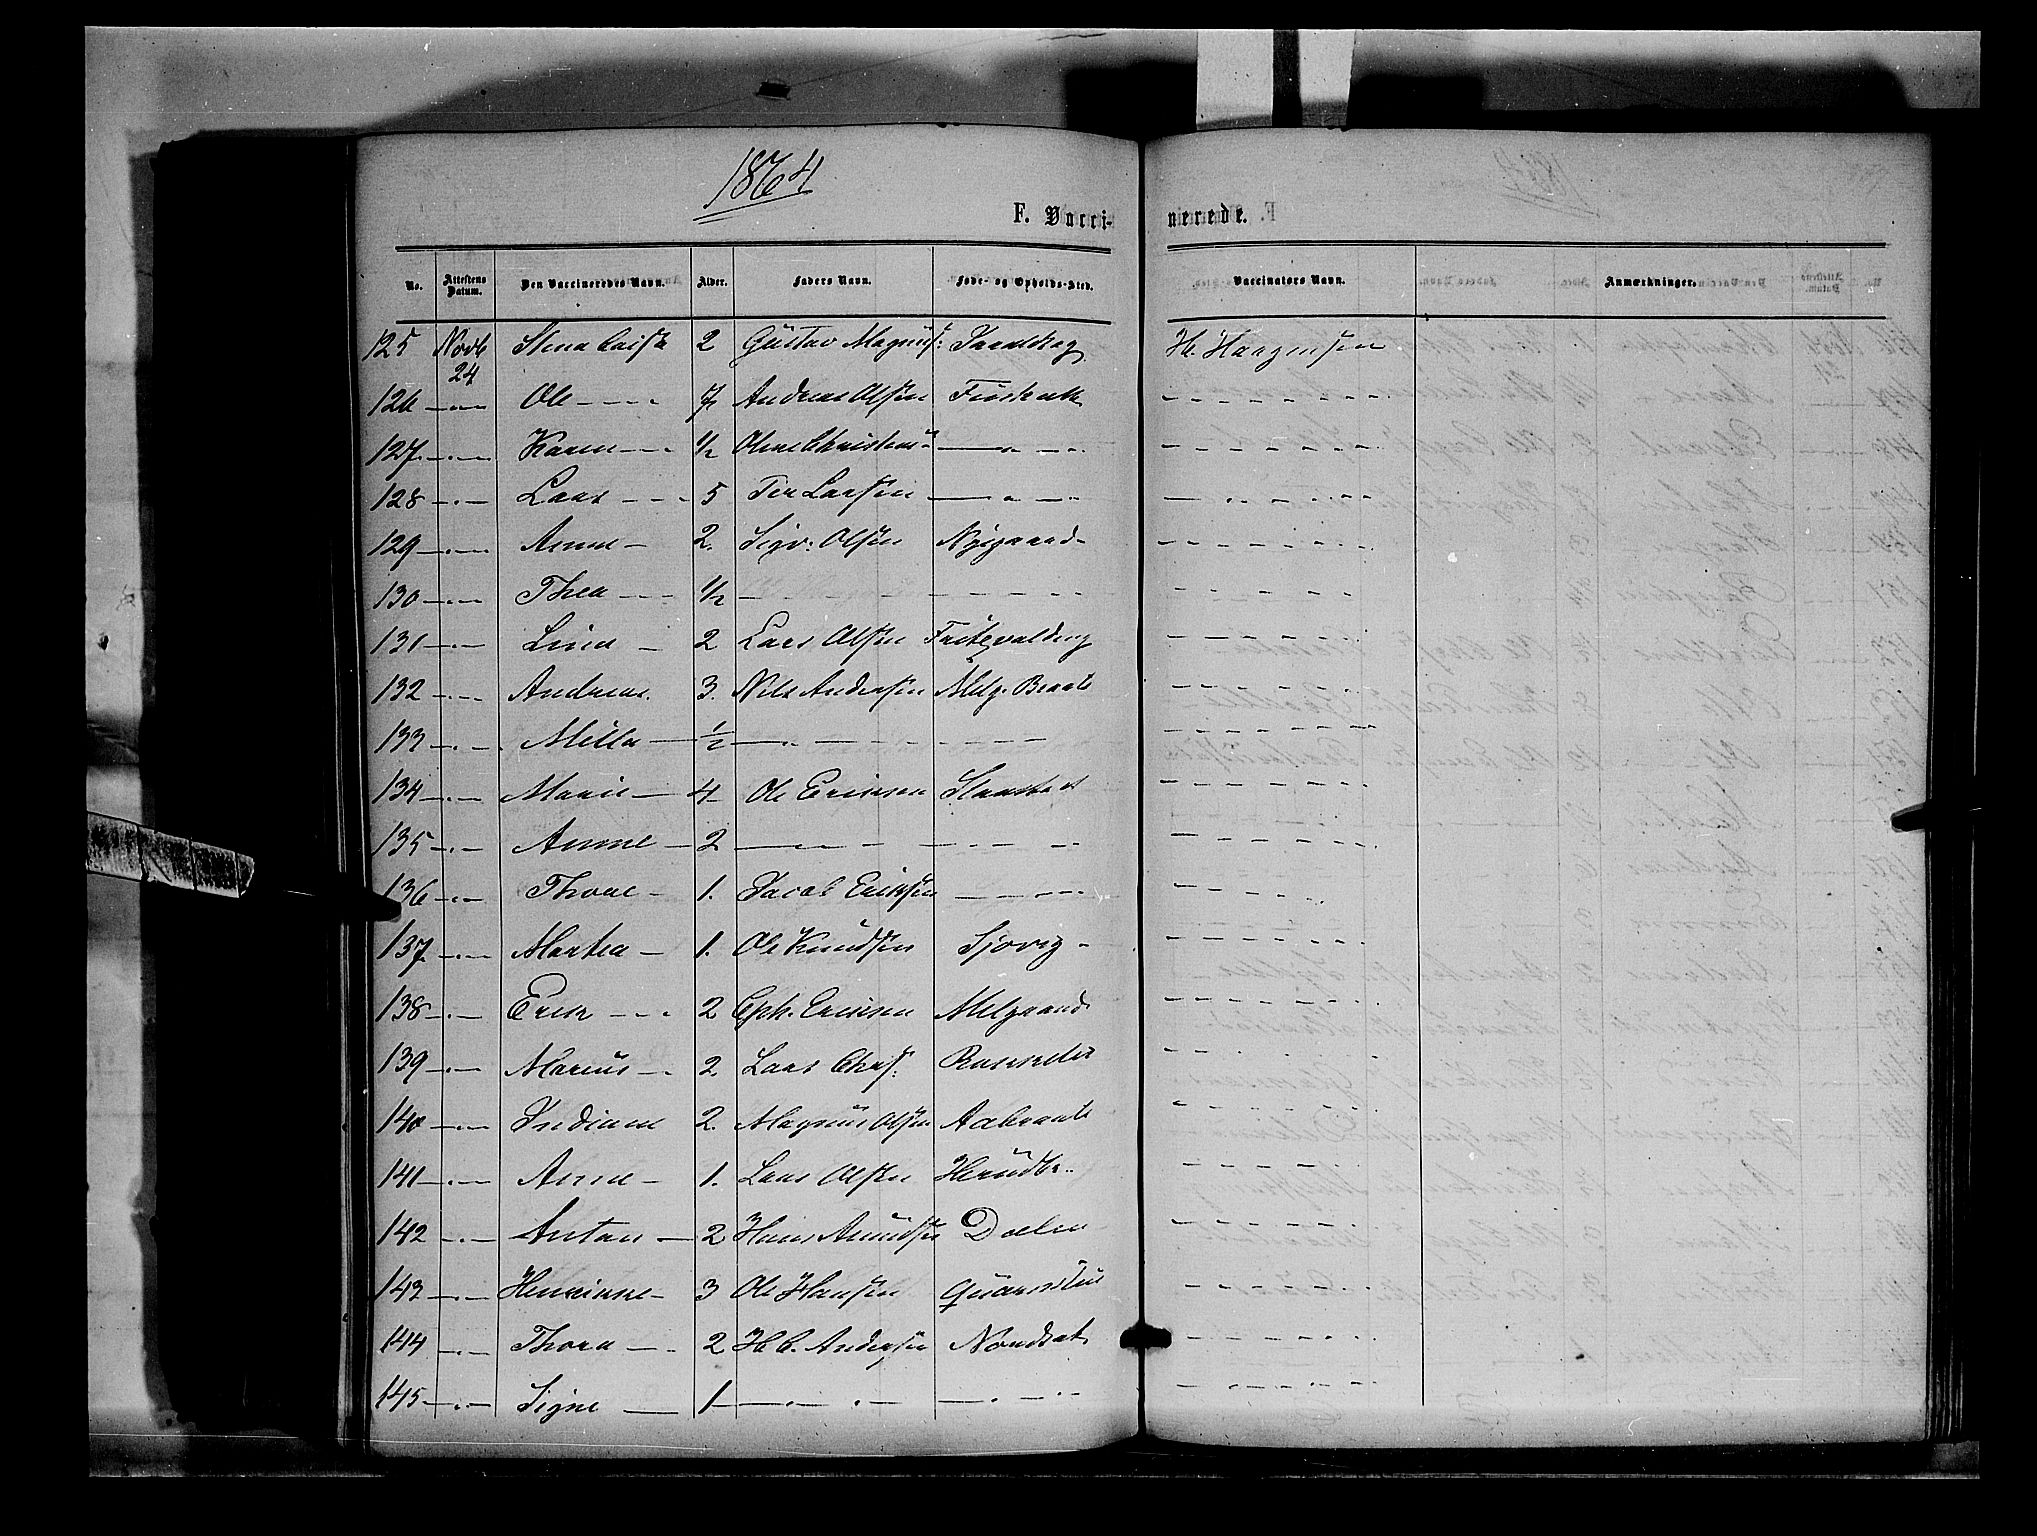 1864
F. Vacci- nerede.
No. Attestens Datum. Den Vaccineredes Navn. Alder. Faders Navn. Føde- og Opholds-Sted. Vaccinators Navn. Anmærkninger.
125 Novb 24 Stena 2 Gustav Magnus: H. Haagensen
126 -"- Ole - - - 7 Andreas Olsen - - - - - -
127 -"- Karen - - - 1/2 - " - - - - - - - -
128 -"- Lars - - - 5 Per Larsen - " - - - - - - - -
129 -"- Anne - 2. Sigv: Olsen Nygaard - - - - - - -
130 -"- Thea - - - 1/2 - - - - - - - - - - - - - -
131 -"- Lina - 2 Lars Olsen - - - - - -
132 -"- Andreas 3. Nils Andersen Melg. Braat - - - - - -
133 -"- Milla - 1/2 - " - - - - - - - - - - - - -
134 -"- Marie - 4 Ole Eriksen Slaastad - - - - - -
135 -"- Anne - 2 - " - - - - - - - - - - - -
136 -"- Thone - 1. Jacob Eriksen - - - - - - - -
137 -"- Marthea - 1. Ole Knudsen - - - - - -
138 -"- Erik - - - 2 Chr. Eriksen Melgaard - - - - - -
139 -"- Marius - - 2. Lars Chrs: - - - - - -
140 -"- Indiane 2. Magnus Olsen Aabraat - - - - - -
141 -"- Anne - 1. Lars Olsen - - - - - -
142 -"- Anton - 2 Hans Amundsen Dalen - - - - - -
143 -"- Henrikke - 3 Ole Hansen - - - - - -
144 -"- Thora - - 2 H C. Andersen Nordset - - - - - -
145 -"- Signe - 1 - " - " - - " - - - - - - - -